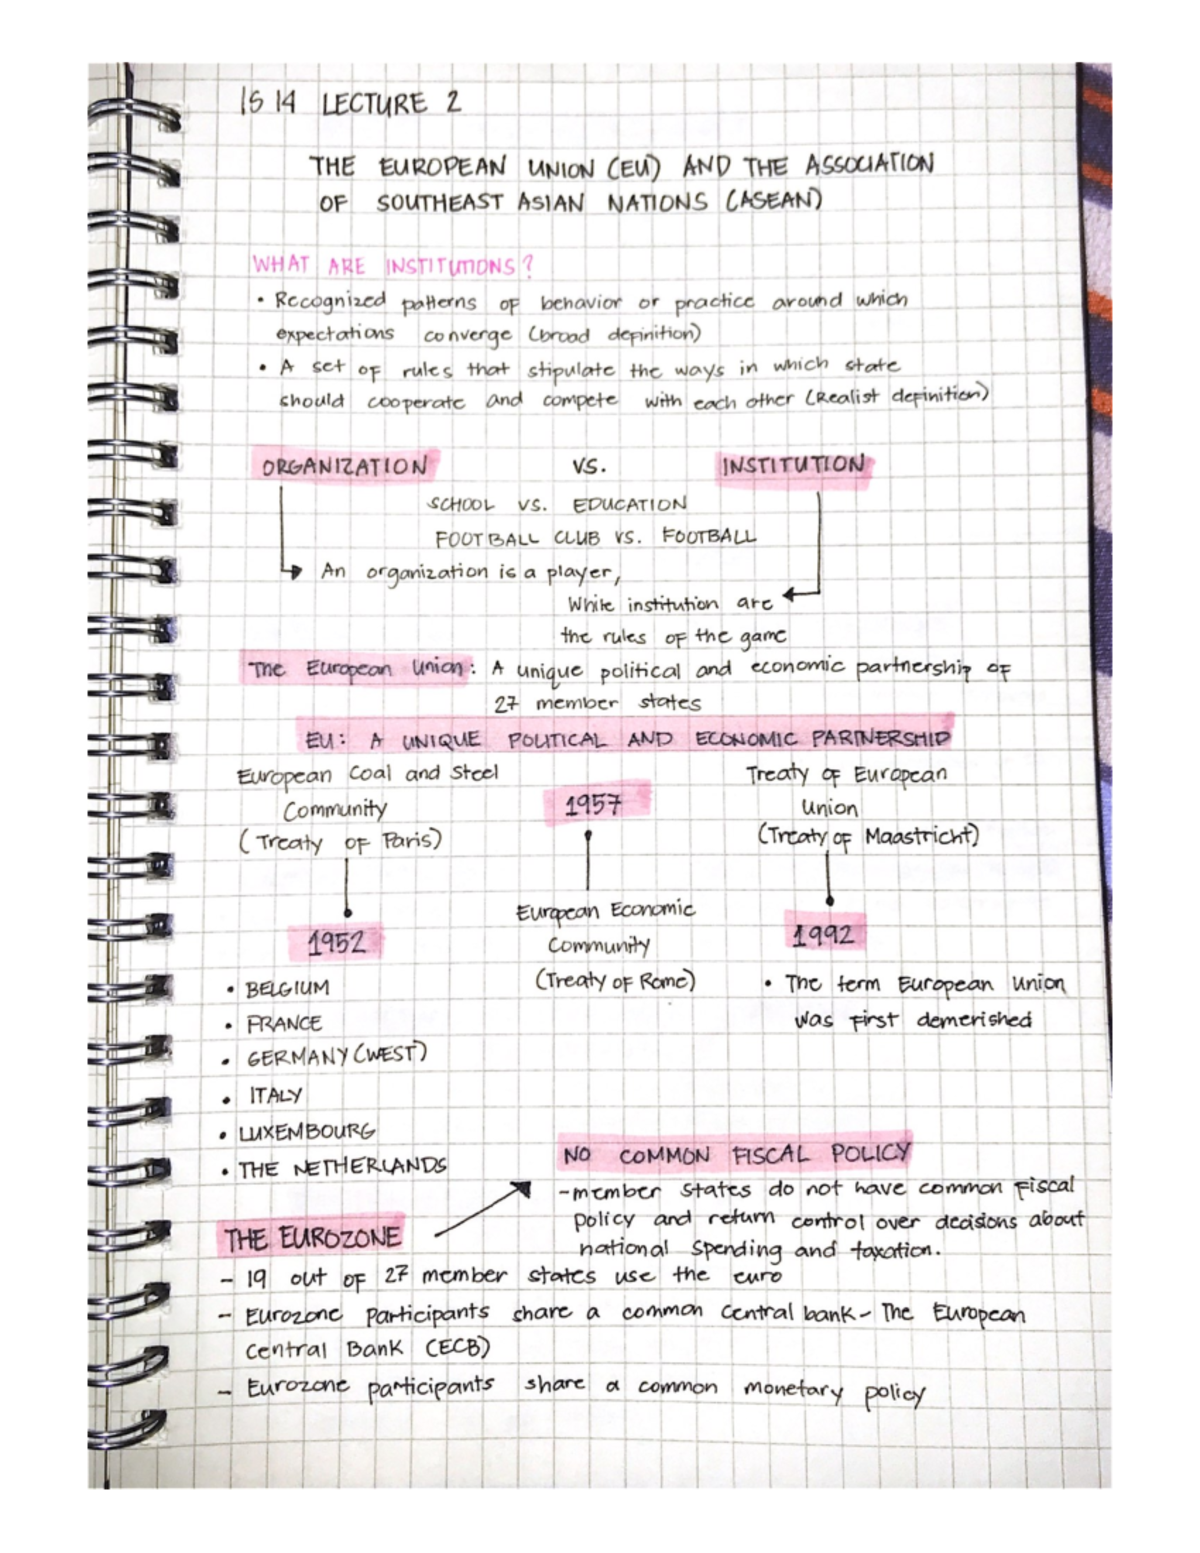 IS 14 LECTURE 2
THE EUROPEAN UNION (EU) AND THE ASSOCIATION
OF SOUTHEAST ASIAN NATIONS (ASEAN)
WHAT ARE INSTITUTIONS?
• Recognized patterns of behavior or practice around which
expectations converge (broad definition)
• A set of rules that stipulate the ways in which state
should cooperate and compete with each other (Realist definition)
ORGANIZATION VS. INSTITUTION
SCHOOL VS. EDUCATION
FOOTBALL CLUB VS. FOOTBALL
An organization is a player,
While institution are
the rules of the game
The European Union: A unique political and economic partnership of
27 member states
EU: A UNIQUE POLITICAL AND ECONOMIC PARTNERSHIP
European Coal and Steel
Community
(Treaty of Paris)
1952
• BELGIUM
• FRANCE
• GERMANY (WEST)
• ITALY
• LUXEMBOURG
• THE NETHERLANDS
1957
European Economic
Community
(Treaty of Rome)
Treaty of European
Union
(Treaty of Maastricht)
1992
• The term European Union
was first demerished
THE EUROZONE
NO COMMON FISCAL POLICY
-member states do not have common fiscal
policy and return control over decisions about
national spending and taxation.
- 19 out of 27 member states use the euro
- Eurozone participants share a common central bank - The European
Central Bank (ECB)
- Eurozone participants share a common monetary policy